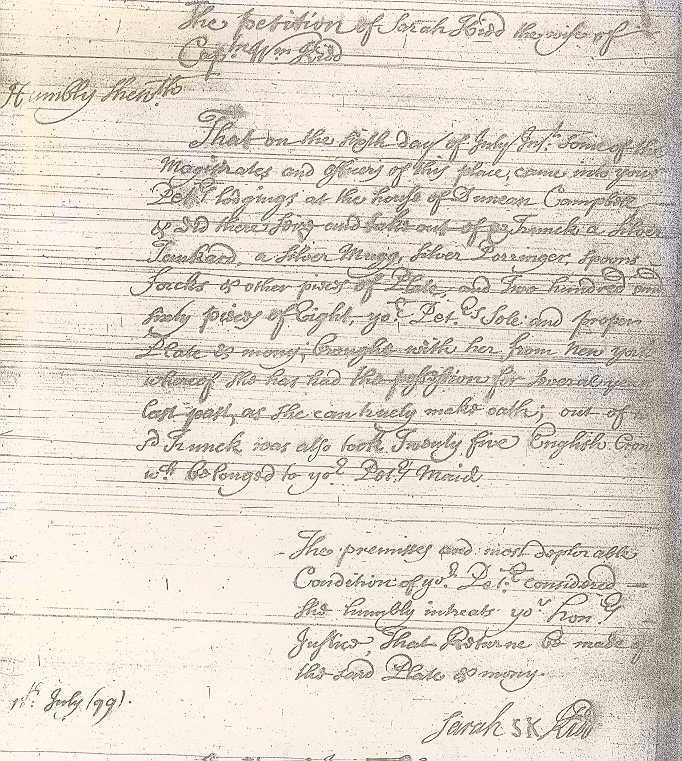 The petition of Sarah Kidd the wife of
Capt.n Wm Kidd
Humbly Sheweth
That on the sixth day of July Inst. some of the
Magistrates and officers of this place, came into your
Pet.rs lodgings at the house of Duncan Campbell
& did there seize and take out of ye Trunck a Silver
Tankard, a Silver Mugg, Silver Porringer, spoons
forcks & other pieces of Plate, and Two hundred and
sixty pieces of Eight, yo.r Pet.rs Sole and proper
Plate & mony, brought with her from New York
whereof she has had the possession for several years
last past, as she can truely make oath; out of
sd Trunck was also took Twenty five English Crowns
wch belonged to yo.r Pet.rs Maid
The premisses and most deplorable
Condition of yo.r Pet.r considered —
She humbly intreats yo.r hon.rs
Justice, That Returne be made of
the said Plate & mony.
July (99).
Sarah SK Kidd